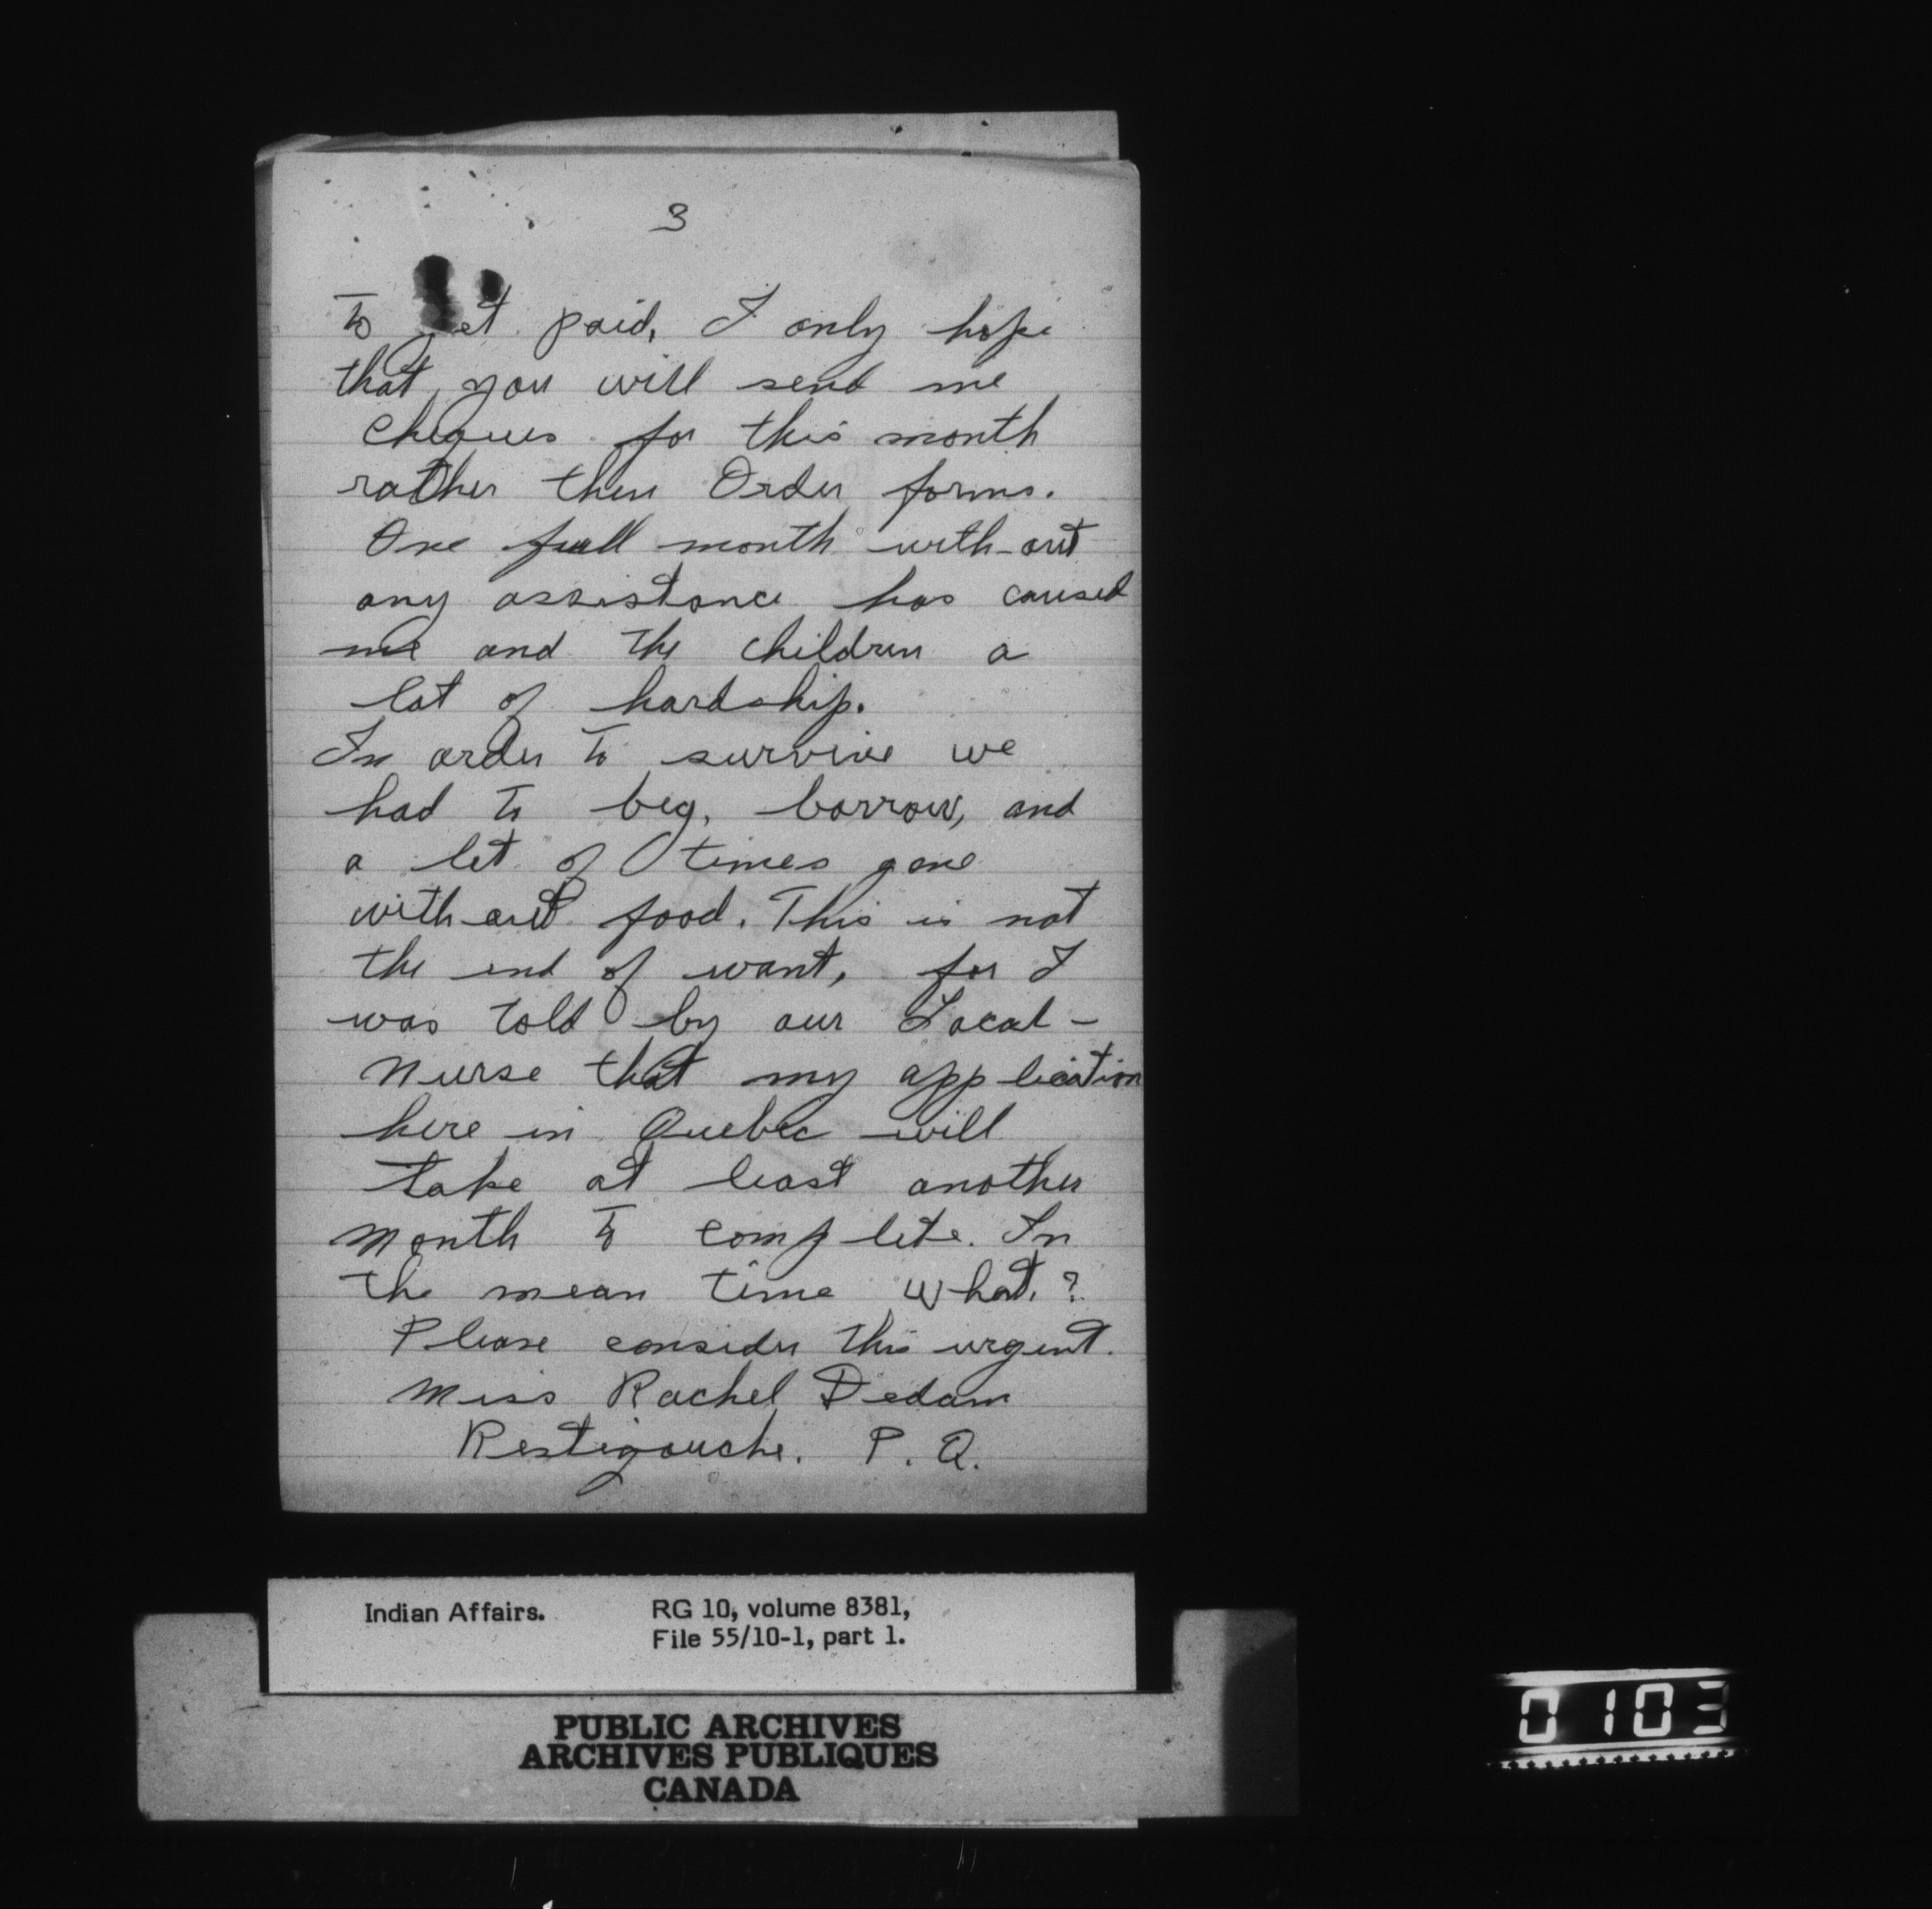 3
To get paid, I only hope
that you will send me
cheques for this month
rather then Order forms.
One full month with-out
any assistance has caused
me and the children a
lot of hardship.
In order to survive we
had to beg, borrow, and
a lot of times gone
with-out food. This is not
the end of want, for I
was told by our Local-
Nurse that my application
here in Quebec will
take at least another
month to complete. In
the mean time what?
Please consider this urgent.
Miss Rachel Dedam
Restigouche. P. Q.
Indian Affairs. RG 10, volume 8381,
File 55/10-1, part 1.
PUBLIC ARCHIVES
ARCHIVES PUBLIQUES
CANADA
0103